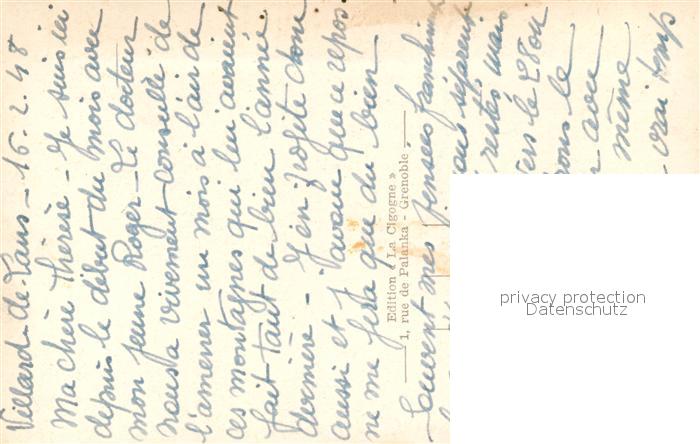 Villard-de-Lans - 16.2.48
Ma chère Thérèse - Je suis ici
depuis le début du mois avec
mon jeune Roger - Le docteur
nous a vivement conseillé de
l'amener un mois à l'air de
ces montagnes qui lui avaient
fait tant de bien l'année
dernière - J'en profite donc
aussi et j'avoue que ce repos
ne me fera que du bien
Edition « La Cigogne »
1, rue de Palanka - Grenoble
Souvent mes pensées franchissent
nous séparent
restés mais
vers le 28 ou
sous le
avec
même
vrai temps
privacy protection
Datenschutz